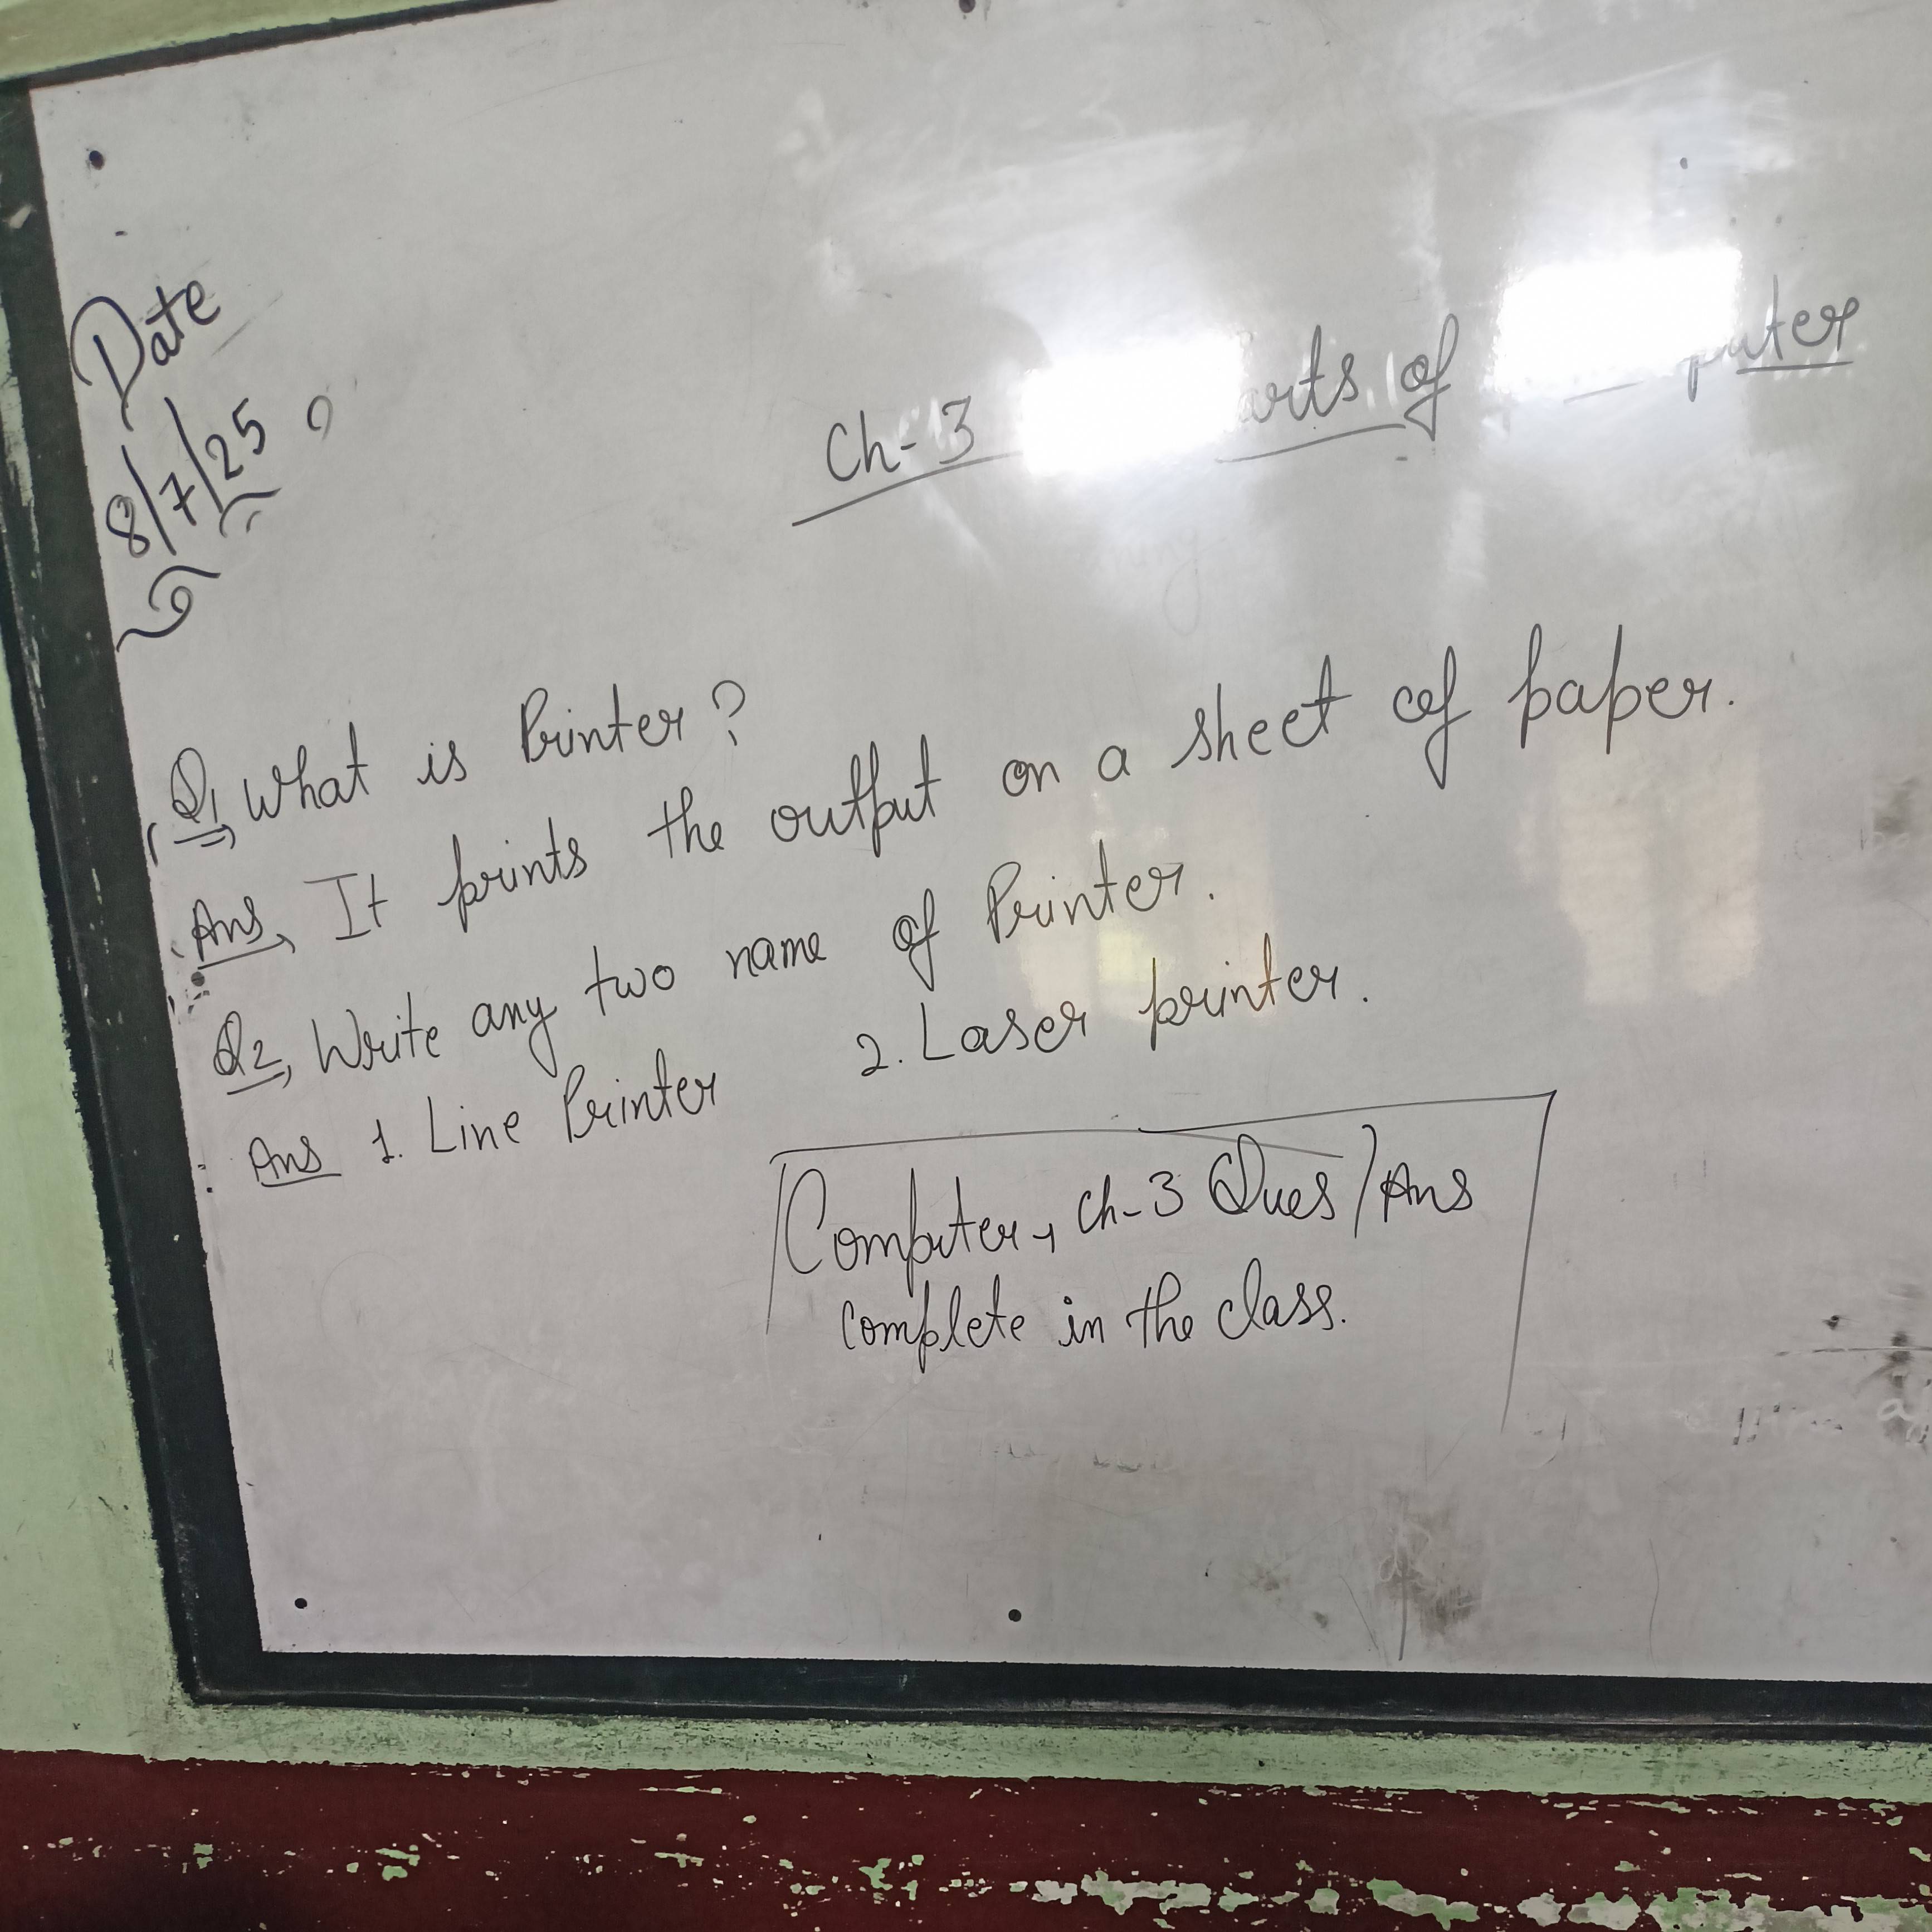 Date
8/7/25
Ch-3 arts of puter
Q1, What is Printer?
Ans, It prints the output on a sheet of paper.
Q2, Write any two name of Printer.
Ans 1. Line Printer 2. Laser printer.
Computer, Ch-3 Ques/Ans
complete in the class.